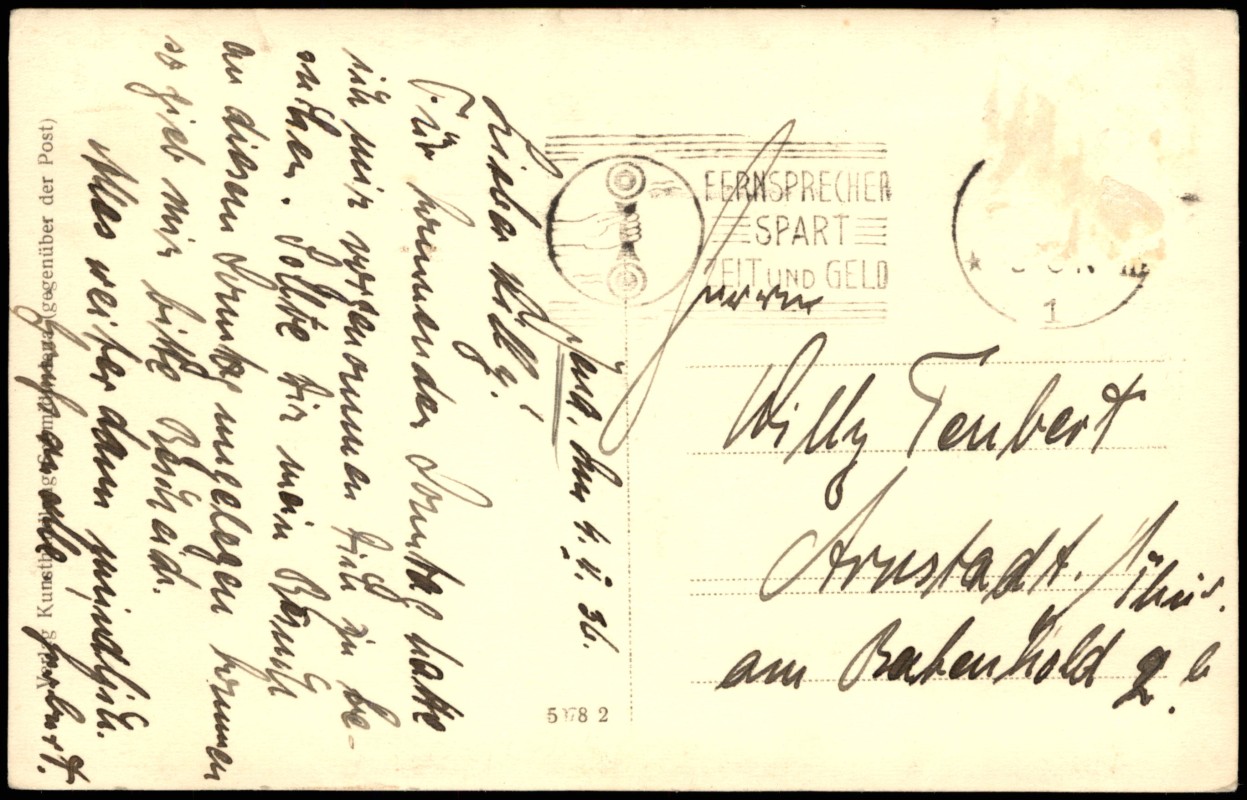 den 4. V. 36.
Lieber Willy!
Für kommenden Sonntag hatte
ich mir vorgenommen Dich zu be-
suchen. Sollte Dir mein Besuch
an diesem Sonntag ungelegen kommen
so gieb mir bitte Bescheid.
Alles weitere dann mündlich.
Herbert.
Verlag Kunsthandlung (gegenüber der Post)
FERNSPRECHER
SPART
ZEIT UND GELD
1
Herrn
Willy Teubert
Arnstadt. /Thür.
am
5078 2